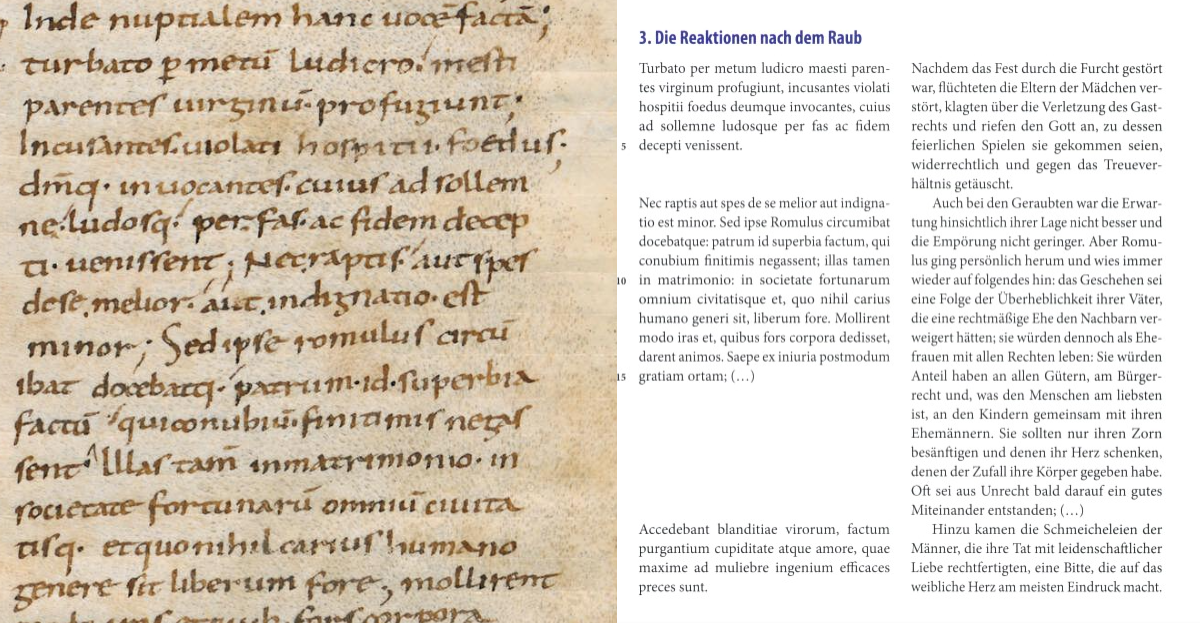 Inde nuptialem hanc uocē factā;
turbato ꝑ metū ludicro. mesti
parentes uirginū. profugiunt;
Incusantes. uiolati hospitii. foedus.
dm̄q. inuocantes. cuius ad sollem
ne. ludosq. per. fas. ac fidem decep
ti. uenissent; Nec raptis. aut spes
dese. melior. aut. indignatio. est
minor; Sed ipse romulus circū
ibat docebatq. patrum. id. superbia
factū qui conubiū. finitimis negas
sent Illas tam̄ inmatrimonio. in
societate fortunarū omniū ciuita
tisq. et quo nihil carius humano
genere sit liberum fore; mollirent
3. Die Reaktionen nach dem Raub
Turbato per metum ludicro maesti paren-
tes virginum profugiunt, incusantes violati
hospitii foedus deumque invocantes, cuius
ad sollemne ludosque per fas ac fidem
5 decepti venissent.
Nec raptis aut spes de se melior aut indigna-
tio est minor. Sed ipse Romulus circumibat
docebatque: patrum id superbia factum, qui
conubium finitimis negassent; illas tamen
10 in matrimonio: in societate fortunarum
omnium civitatisque et, quo nihil carius
humano generi sit, liberum fore. Mollirent
modo iras et, quibus fors corpora dedisset,
darent animos. Saepe ex iniuria postmodum
15 gratiam ortam; (…)
Accedebant blanditiae virorum, factum
purgantium cupiditate atque amore, quae
maxime ad muliebre ingenium efficaces
preces sunt.
Nachdem das Fest durch die Furcht gestört
war, flüchteten die Eltern der Mädchen ver-
stört, klagten über die Verletzung des Gast-
rechts und riefen den Gott an, zu dessen
feierlichen Spielen sie gekommen seien,
widerrechtlich und gegen das Treuever-
hältnis getäuscht.
Auch bei den Geraubten war die Erwar-
tung hinsichtlich ihrer Lage nicht besser und
die Empörung nicht geringer. Aber Romu-
lus ging persönlich herum und wies immer
wieder auf folgendes hin: das Geschehen sei
eine Folge der Überheblichkeit ihrer Väter,
die eine rechtmäßige Ehe den Nachbarn ver-
weigert hätten; sie würden dennoch als Ehe-
frauen mit allen Rechten leben: Sie würden
Anteil haben an allen Gütern, am Bürger-
recht und, was den Menschen am liebsten
ist, an den Kindern gemeinsam mit ihren
Ehemännern. Sie sollten nur ihren Zorn
besänftigen und denen ihr Herz schenken,
denen der Zufall ihre Körper gegeben habe.
Oft sei aus Unrecht bald darauf ein gutes
Miteinander entstanden; (…)
Hinzu kamen die Schmeicheleien der
Männer, die ihre Tat mit leidenschaftlicher
Liebe rechtfertigten, eine Bitte, die auf das
weibliche Herz am meisten Eindruck macht.